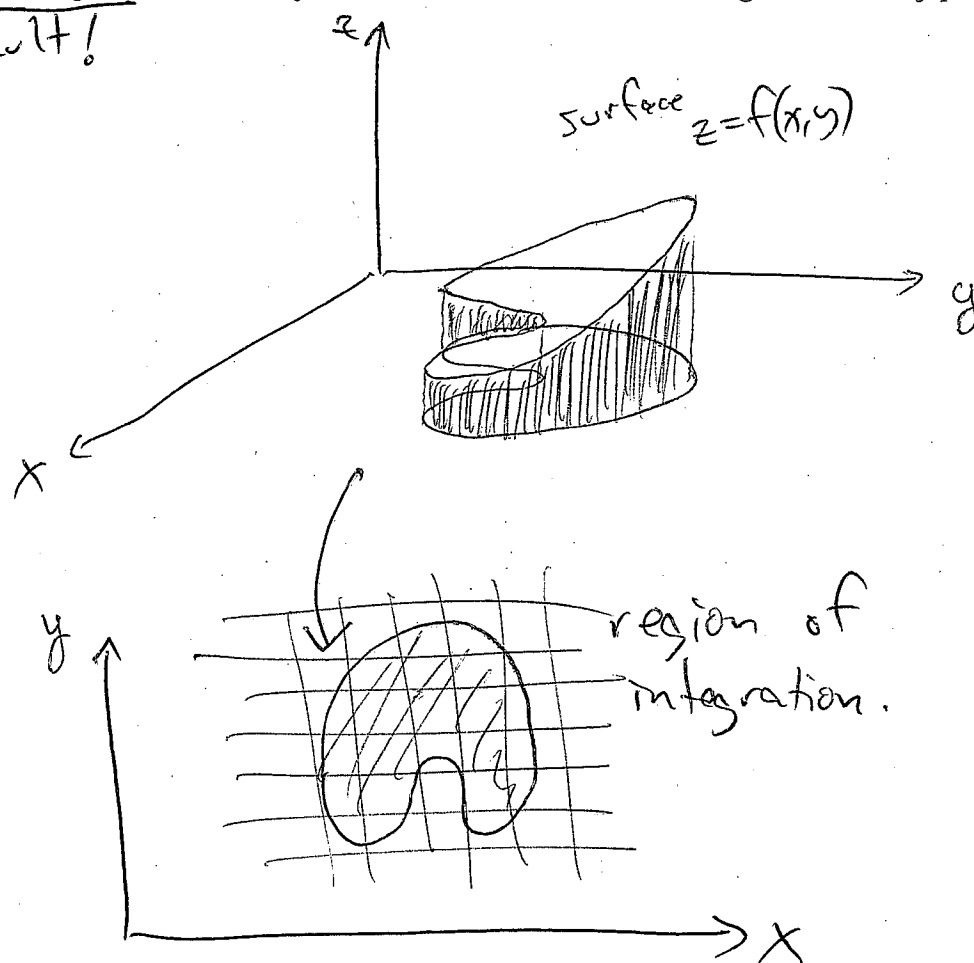 ult!
z
surface z=f(x,y)
y
x
y
region of
integration.
x